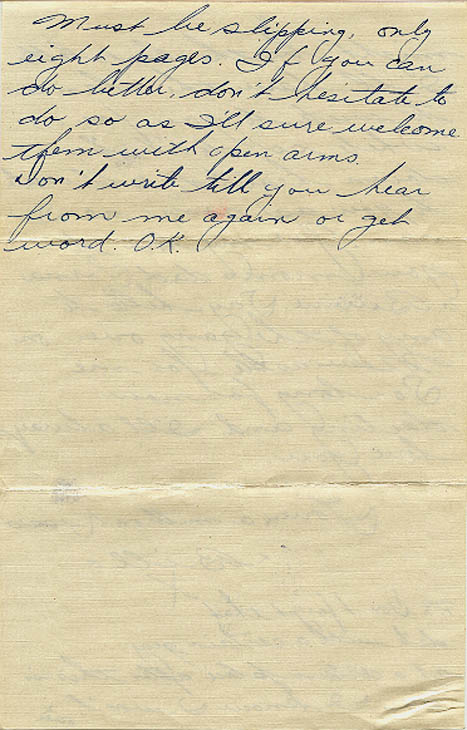 Must be slipping, only
eight pages. If you can
do better, don't hesitate to
do so as I'll sure welcome
them with open arms.
Don't write till you hear
from me again or get
word. O.K.